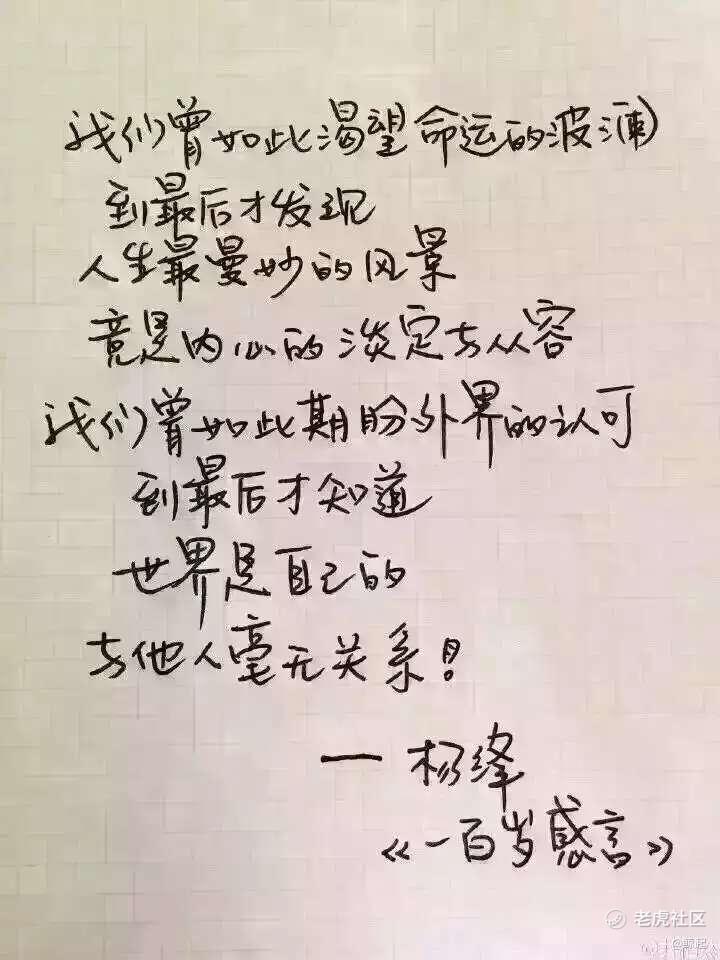 我们曾如此渴望命运的波澜
到最后才发现
人生最曼妙的风景
竟是内心的淡定与从容
我们曾如此期盼外界的认可
到最后才知道
世界是自己的
与他人毫无关系！
— 杨绛
《一百岁感言》
老虎社区